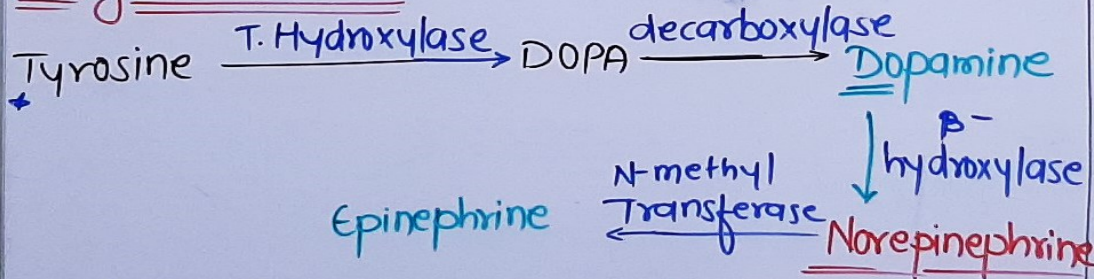 Tyrosine T. Hydroxylase DOPA decarboxylase Dopamine
β-
hydroxylase
N-methyl
Transferase
Epinephrine Norepinephrine